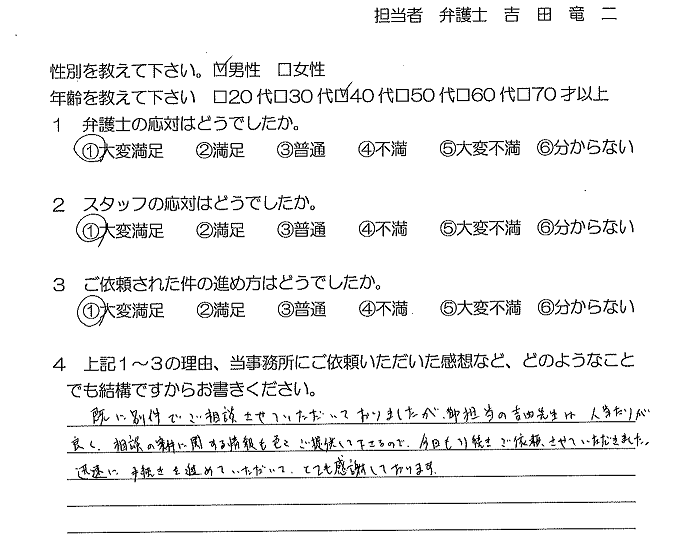 担当者 弁護士 吉 田 竜 二
性別を教えて下さい。☑男性 □女性
年齢を教えて下さい □20代□30代☑40代□50代□60代□70才以上
1 弁護士の応対はどうでしたか。
①大変満足 ②満足 ③普通 ④不満 ⑤大変不満 ⑥分からない
2 スタッフの応対はどうでしたか。
①大変満足 ②満足 ③普通 ④不満 ⑤大変不満 ⑥分からない
3 ご依頼された件の進め方はどうでしたか。
①大変満足 ②満足 ③普通 ④不満 ⑤大変不満 ⑥分からない
4 上記1～3の理由、当事務所にご依頼いただいた感想など、どのようなこと
でも結構ですからお書きください。
既に別件でご相談させていただいておりましたが、御担当の吉田先生は 人当たりが
良く、相談の解に関する情報も色々ご提供して下さるので、今回も引続きご依頼させていただきました。
迅速に手続きを進めていただいて、とても感謝しております。